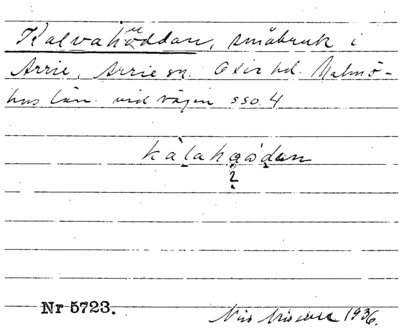 Kalvahöddan, småbruk i
Arrie, Arrie sn. Oxie hd. Malmö-
hus län. vid vägen sso. 4
kàlahω̇dan
2
Nr 5723.
Nils 1936.